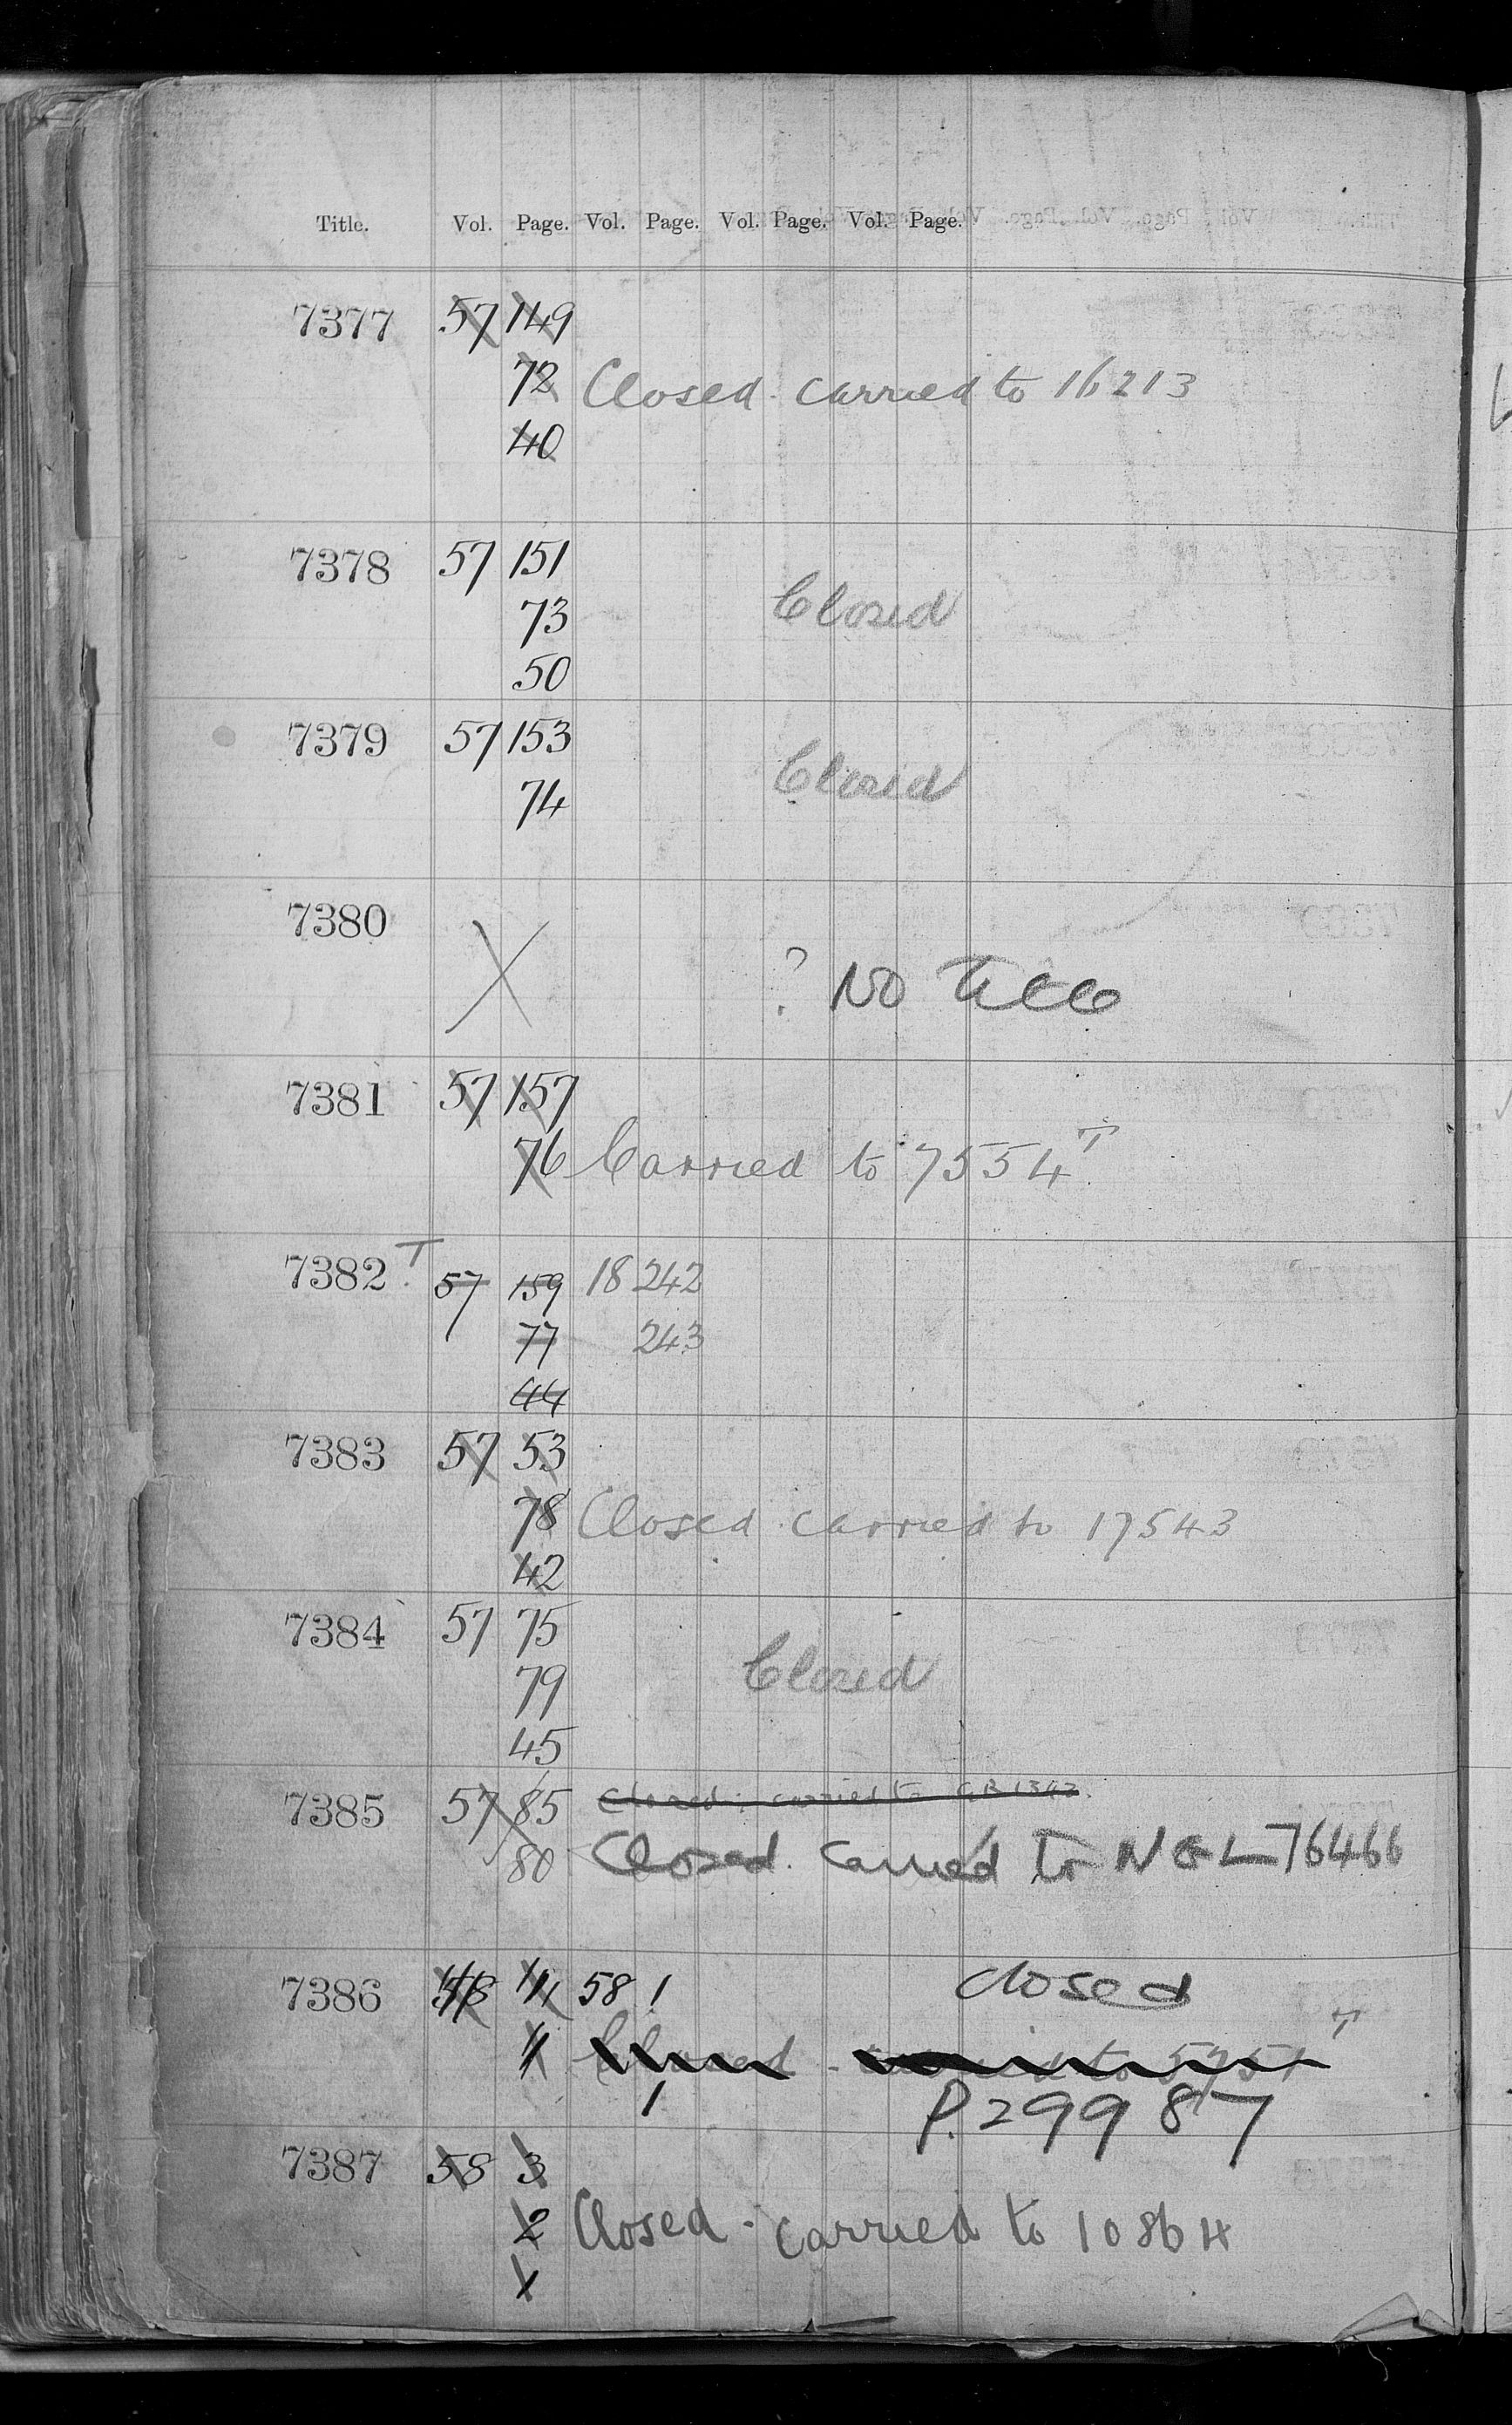 Title. Vol. Page. Vol. Page. Vol. Page. Vol. Page.
7377 57 149
72 Closed. carried to 16213
40
7378 57 151
73 Closed
50
7379 57 153
74 Closed
7380 X ? No Title
7381 57 157
76 Carried to 7554 T
7382 T 57 159 18 242
77 243
44
7383 57 53
78 Closed. carried to 17543
42
7384 57 75
79 Closed
45
7385 57 85 Closed: carried to
80 Closed. Carried to N G L 76466
7386 58 58 1 Closed
1 Closed - to T
1 P. 29987
7387 58 3
2 Closed - carried to 10864
1